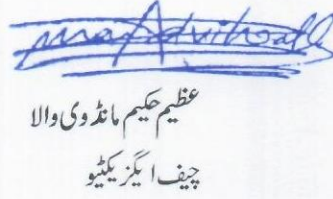 عظیم حکیم مانڈوی والا
چیف ایگزیکٹیو